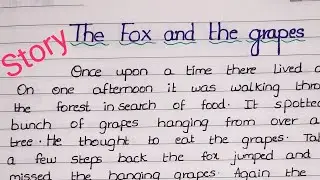 Story The Fox and the grapes
Once upon a time there lived a
On one afternoon it was walking
the forest in search of food. It spotted
bunch of grapes hanging from over a
tree. He thought to eat the grapes.
a few steps back the fox jumped and
missed the hanging grapes. Again the